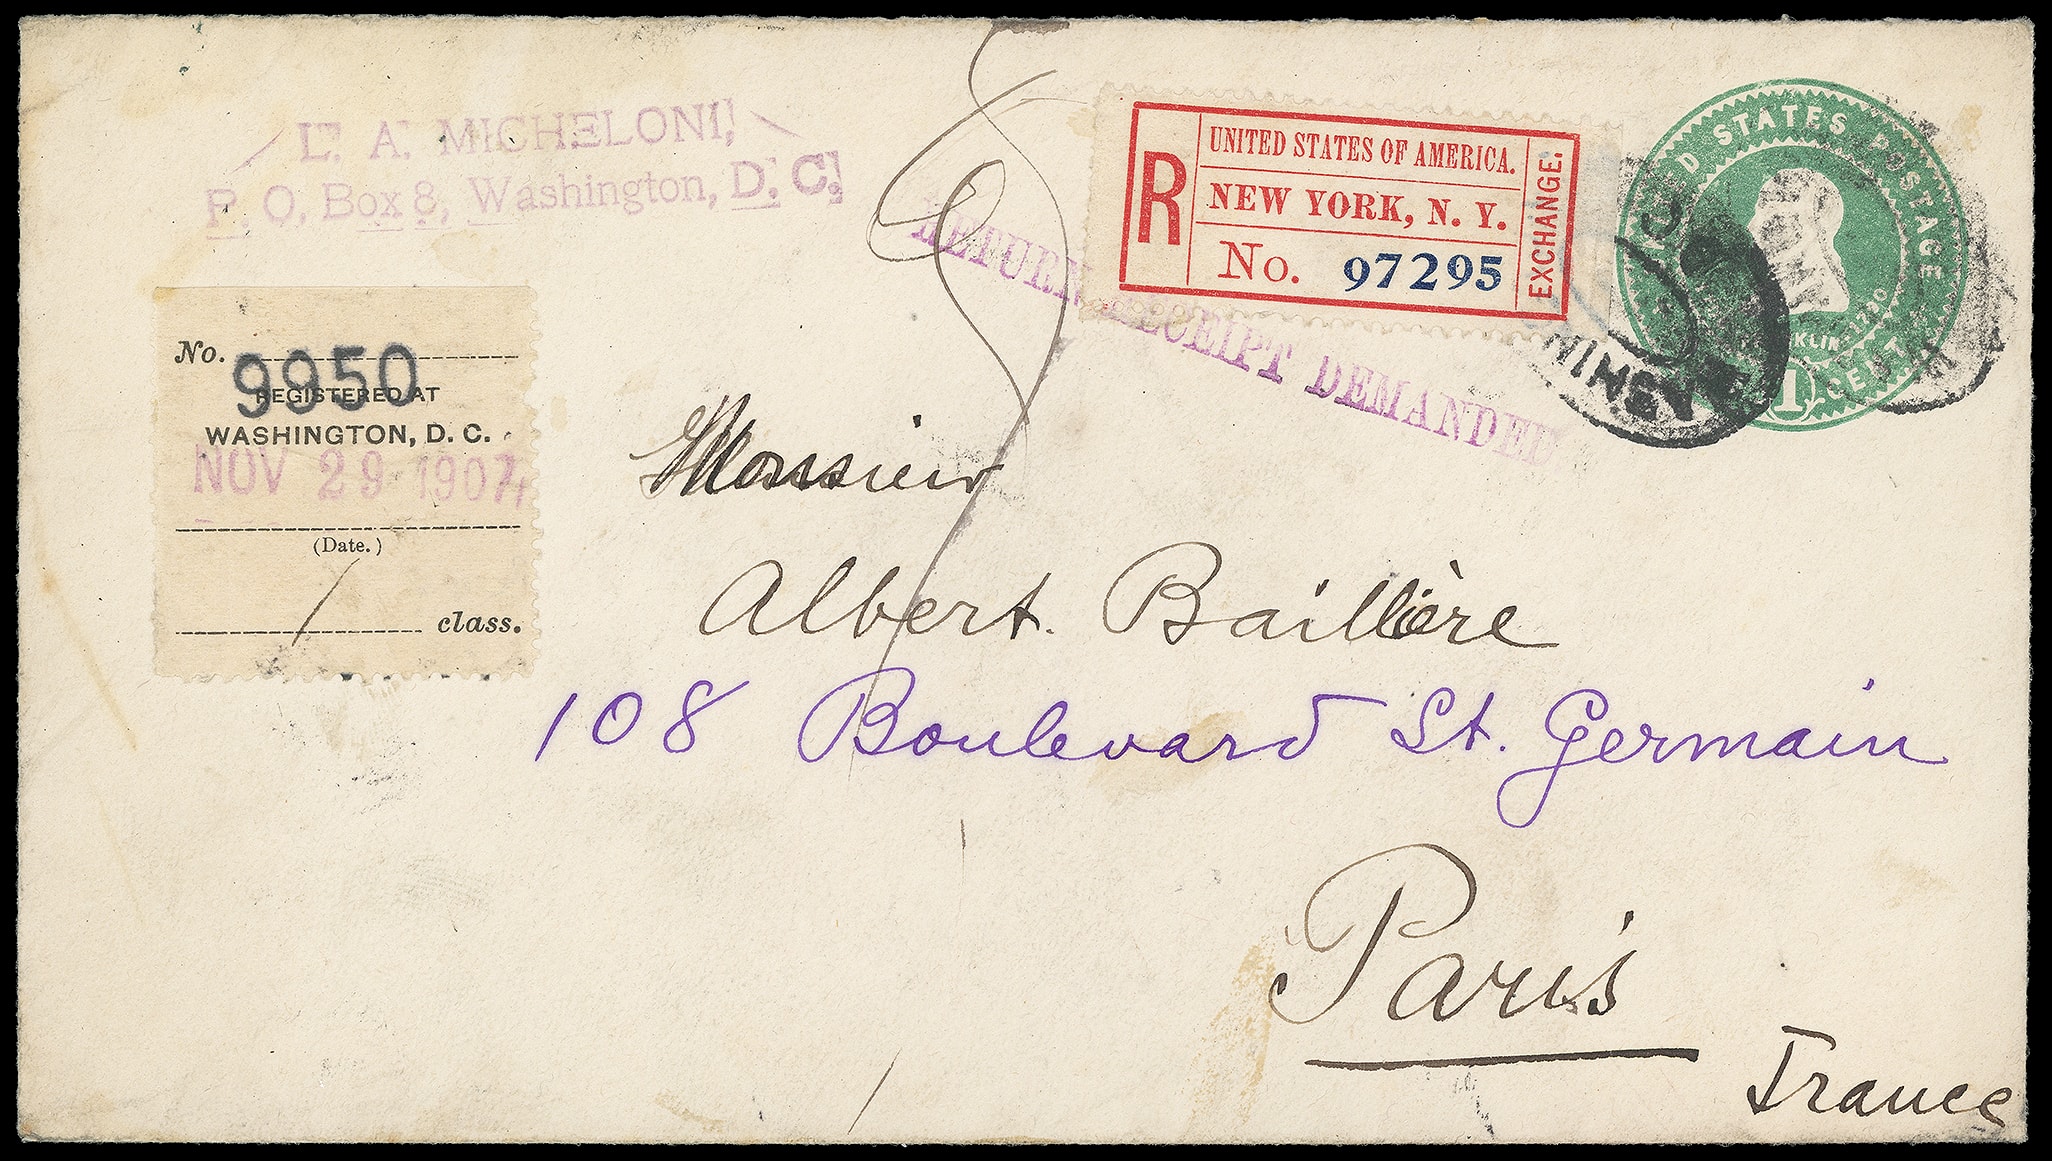 L. A. MICHELONI,
P. O. Box 8, Washington, D. C.
RETURN RECEIPT DEMANDED
R
UNITED STATES OF AMERICA.
NEW YORK, N. Y.
No. 97295
EXCHANGE.
STATES POSTAGE
1 CENT
No. 9950
REGISTERED AT
WASHINGTON, D. C.
NOV 29 1907
(Date.)
1 class.
Monsieur
Albert Baillière
108 Boulevard St. Germain
Paris
France